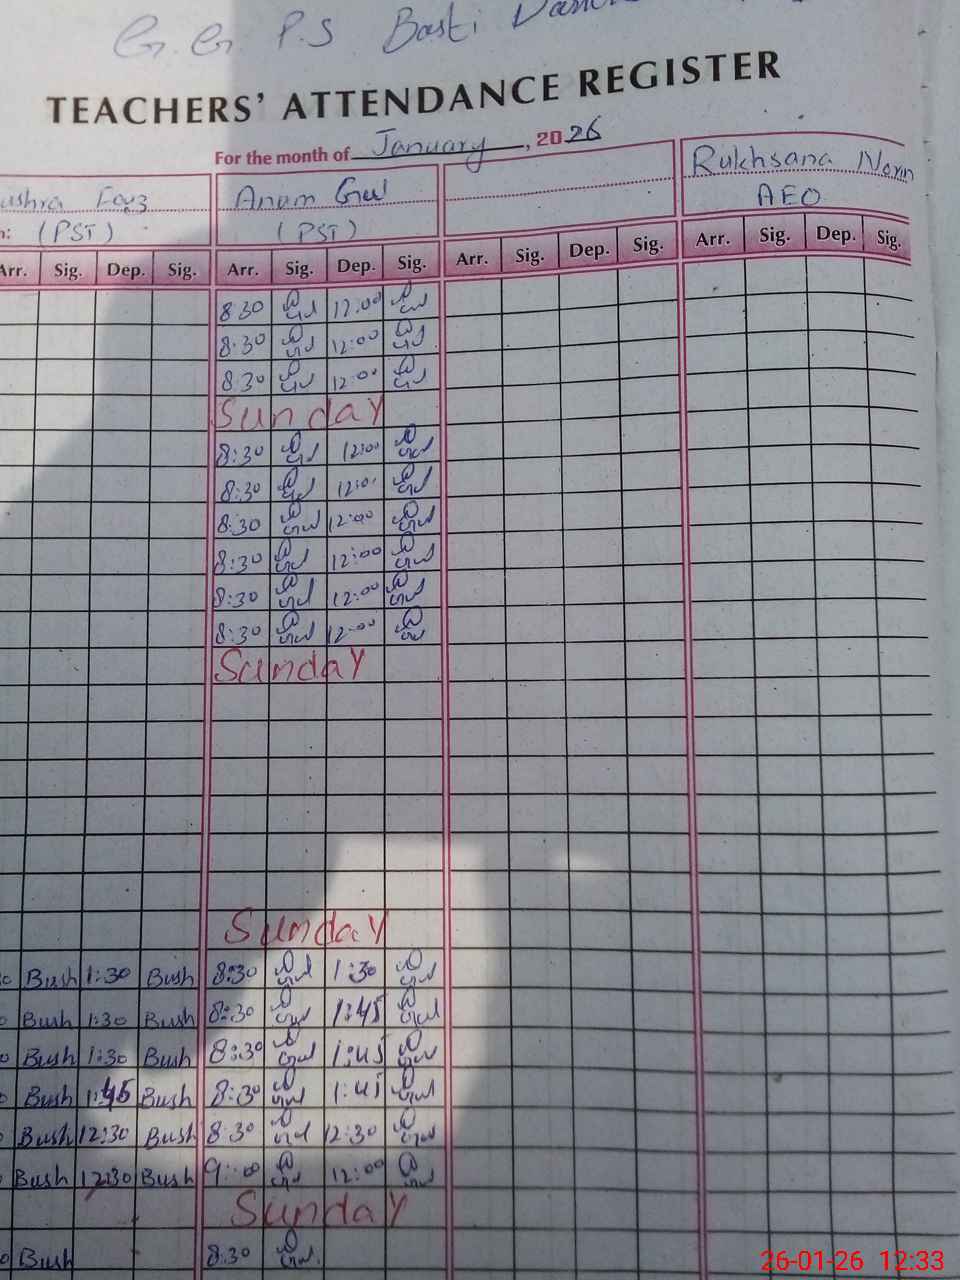 G. G. P.S Basti
TEACHERS' ATTENDANCE REGISTER
For the month of January, 2026
ushra Fayz Anum Gul Rukhsana Noreen
(PST) (PST) AEO
Arr. Sig. Dep. Sig. Arr. Sig. Dep. Sig. Arr. Sig. Dep. Sig. Arr. Sig. Dep. Sig.
8:30 12:00
8:30 12:00
8:30 12:00
Sunday
8:30 12:00
8:30 12:0
8:30 12:00
8:30 12:00
8:30 12:00
8:30 12:00
Sunday
Sunday
0 Bush 1:30 Bush 8:30 1:30
0 Bush 1:30 Bush 8:30 1:45
0 Bush 1:30 Bush 8:30 1:45
0 Bush 1:45 Bush 8:30 1:45
0 Bush 12:30 Bush 8:30 12:30
Bush 12:30 Bush 9:00 12:00
Sunday
0 Bush 8:30
26-01-26 12:33